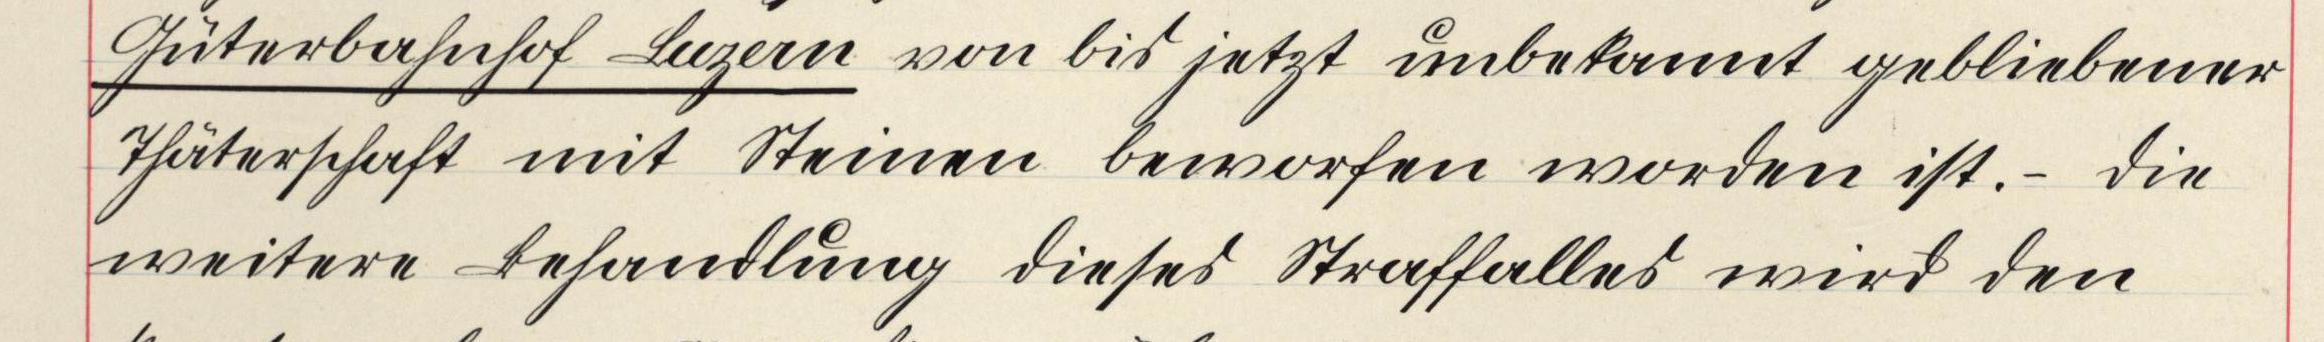 Güterbahnhof Luzern von bis jetzt unbekannt gebliebener
Thäterschaft mit Steinen beworfen worden ist.- Die
weitere Behandlung dieses Straffalles wird den